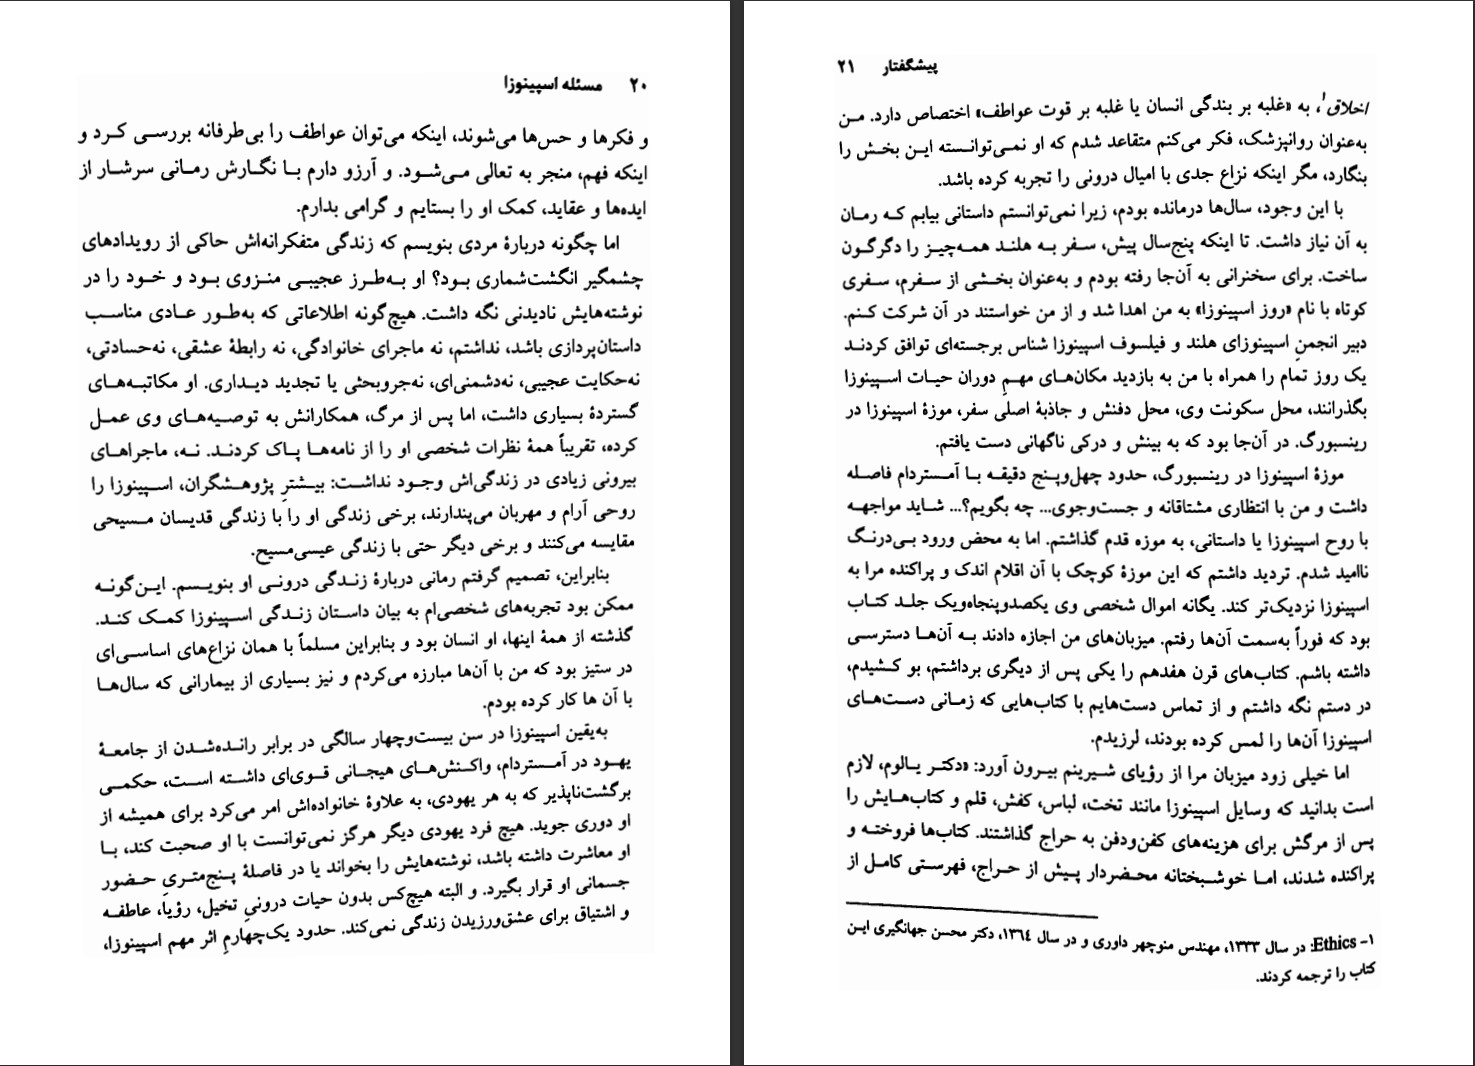 ۲۰ مسئله اسپینوزا
و فکرها و حس‌ها می‌شوند، اینکه می‌توان عواطف را بی‌طرفانه بررسی کرد و
اینکه فهم، منجر به تعالی می‌شود. و آرزو دارم با نگارش رمانی سرشار از
ایده‌ها و عقاید، کمک او را بستایم و گرامی بدارم.
اما چگونه دربارهٔ مردی بنویسم که زندگی متفکرانه‌اش حاکی از رویدادهای
چشمگیر انگشت‌شماری بود؟ او به‌طرز عجیبی منزوی بود و خود را در
نوشته‌هایش نادیدنی نگه داشت. هیچ‌گونه اطلاعاتی که به‌طور عادی مناسب
داستان‌پردازی باشد، نداشتم، نه ماجرای خانوادگی، نه رابطهٔ عشقی، نه‌حسادتی،
نه‌حکایت عجیبی، نه‌دشمنی‌ای، نه‌جروبحثی یا تجدید دیداری. او مکاتبه‌های
گستردهٔ بسیاری داشت، اما پس از مرگ، همکارانش به توصیه‌های وی عمل
کرده، تقریباً همهٔ نظرات شخصی او را از نامه‌ها پاک کردند. نه، ماجراهای
بیرونی زیادی در زندگی‌اش وجود نداشت: بیشترِ پژوهشگران، اسپینوزا را
روحی آرام و مهربان می‌پندارند، برخی زندگی او را با زندگی قدیسان مسیحی
مقایسه می‌کنند و برخی دیگر حتی با زندگی عیسی‌مسیح.
بنابراین، تصمیم گرفتم رمانی دربارهٔ زندگی درونی او بنویسم. این‌گونه
ممکن بود تجربه‌های شخصی‌ام به بیان داستان زندگی اسپینوزا کمک کند.
گذشته از همهٔ اینها، او انسان بود و بنابراین مسلماً با همان نزاع‌های اساسی‌ای
در ستیز بود که من با آن‌ها مبارزه می‌کردم و نیز بسیاری از بیمارانی که سال‌ها
با آن ها کار کرده بودم.
به‌یقین اسپینوزا در سن بیست‌وچهار سالگی در برابر رانده‌شدن از جامعهٔ
یهود در آمستردام، واکنش‌های هیجانی قوی‌ای داشته است، حکمی
برگشت‌ناپذیر که به هر یهودی، به علاوهٔ خانواده‌اش امر می‌کرد برای همیشه از
او دوری جوید. هیچ فرد یهودی دیگر هرگز نمی‌توانست با او صحبت کند، با
او معاشرت داشته باشد، نوشته‌هایش را بخواند یا در فاصلهٔ پنج‌متریِ حضور
جسمانی او قرار بگیرد. و البته هیچ‌کس بدون حیات درونیِ تخیل، رؤیا، عاطفه
و اشتیاق برای عشق‌ورزیدن زندگی نمی‌کند. حدود یک‌چهارمِ اثر مهم اسپینوزا،
پیشگفتار ۲۱
اخلاق۱، به «غلبه بر بندگی انسان یا غلبه بر قوت عواطف» اختصاص دارد. من
به‌عنوان روانپزشک، فکر می‌کنم متقاعد شدم که او نمی‌توانسته این بخش را
بنگارد، مگر اینکه نزاع جدی با امیال درونی را تجربه کرده باشد.
با این وجود، سال‌ها درمانده بودم، زیرا نمی‌توانستم داستانی بیابم که رمان
به آن نیاز داشت. تا اینکه پنج‌سال پیش، سفر به هلند همه‌چیز را دگرگون
ساخت. برای سخنرانی به آن‌جا رفته بودم و به‌عنوان بخشی از سفرم، سفری
کوتاه با نام «روز اسپینوزا» به من اهدا شد و از من خواستند در آن شرکت کنم.
دبیر انجمنِ اسپینوزای هلند و فیلسوف اسپینوزا شناس برجسته‌ای توافق کردند
یک روز تمام را همراه با من به بازدید مکان‌های مهمِ دوران حیات اسپینوزا
بگذرانند، محل سکونت وی، محل دفنش و جاذبهٔ اصلی سفر، موزهٔ اسپینوزا در
رینسبورگ. در آن‌جا بود که به بینش و درکی ناگهانی دست یافتم.
موزهٔ اسپینوزا در رینسبورگ، حدود چهل‌وپنج دقیقه با آمستردام فاصله
داشت و من با انتظاری مشتاقانه و جست‌وجوی... چه بگویم؟... شاید مواجهه
با روح اسپینوزا یا داستانی، به موزه قدم گذاشتم. اما به محض ورود بی‌درنگ
ناامید شدم. تردید داشتم که این موزهٔ کوچک با آن اقلام اندک و پراکنده مرا به
اسپینوزا نزدیک‌تر کند. یگانه اموال شخصی وی یکصدوپنجاه‌ویک جلد کتاب
بود که فوراً به‌سمت آن‌ها رفتم. میزبان‌های من اجازه دادند به آن‌ها دسترسی
داشته باشم. کتاب‌های قرن هفدهم را یکی پس از دیگری برداشتم، بو کشیدم،
در دستم نگه داشتم و از تماس دست‌هایم با کتاب‌هایی که زمانی دست‌های
اسپینوزا آن‌ها را لمس کرده بودند، لرزیدم.
اما خیلی زود میزبان مرا از رؤیای شیرینم بیرون آورد: «دکتر یالوم، لازم
است بدانید که وسایل اسپینوزا مانند تخت، لباس، کفش، قلم و کتاب‌هایش را
پس از مرگش برای هزینه‌های کفن‌ودفن به حراج گذاشتند. کتاب‌ها فروخته و
پراکنده شدند، اما خوشبختانه محضردار پیش از حراج، فهرستی کامل از
۱- Ethics: در سال ۱۳۳۳، مهندس منوچهر داوری و در سال ۱۳٦٤، دکتر محسن جهانگیری این
کتاب را ترجمه کردند.